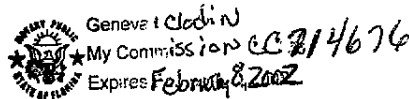 NOTARY PUBLIC
STATE OF FLORIDA
Geneva I Clodin
My Commission CC 714676
Expires February 8, 2002